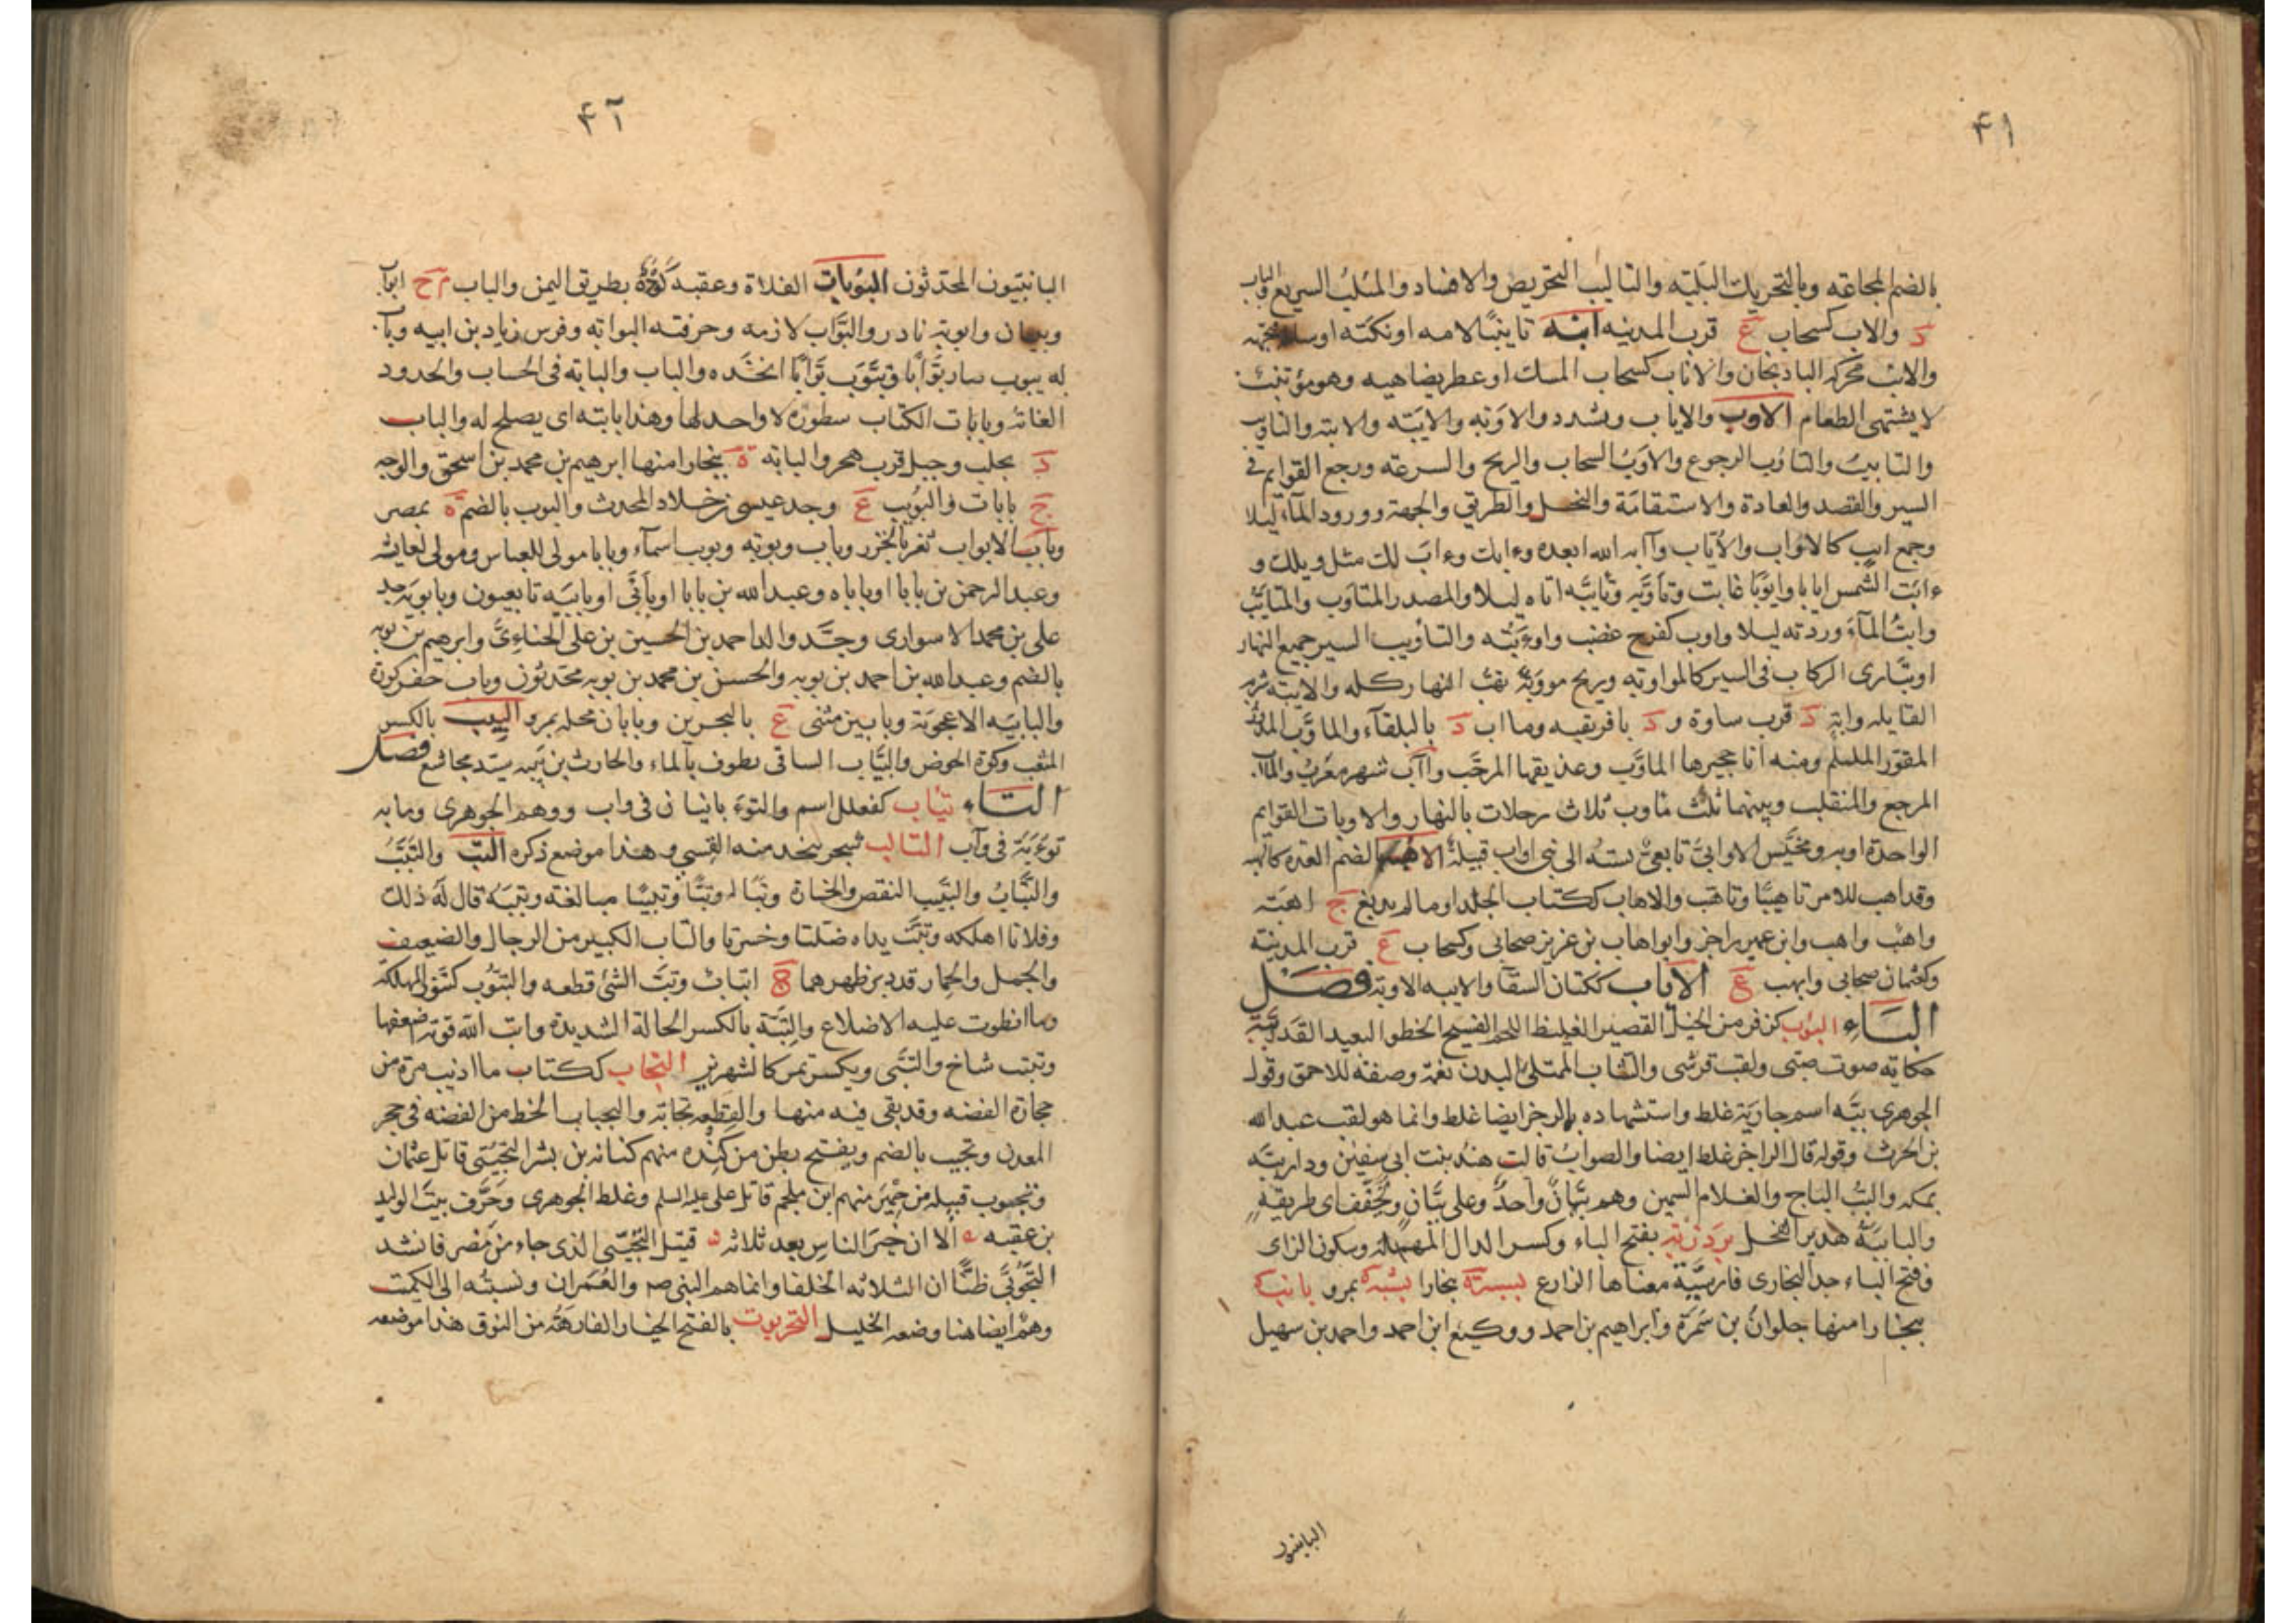 ۴۱
بالضم المجاعة وبالتحريك البلبة والتاليب التحريض والافساد والمئلب السريع والباب
د والاب كسحاب ع قرب المدينة ابنه تانيبا لامه او نكته او سأله فجبهه
والانب محركة الباذنجان والاناب كسحاب المسك او عطر يضاهيه وهو مؤتنب
لا يشتهى الطعام الاوب والاياب ويشدد والاوبة والايبة والابتة والتاويب
والتاييب والتاوب الرجوع والاوب السحاب والريح والسرعة ورجع القوايم فى
السير والقصد والعادة والاستقامة والنحل والطريق والجهة وورود المآء ليلا
وجمع ايب كالاواب والاياب وآابه الله ابعده وءابك وءاب لك مثل ويلك و
ءابت الشمس ايابا وايوبا غابت وتاوبه وتايبه اتاه ليلا والمصدر المتاوب والمتايب
وابت المآء وردته ليلا واوب كفرح غضب واوءبته والتأويب السير جميع النهار
او تبارى الركاب فى السير كالمواوبة وريح مووبة تهب النهار كله والايبة شربة
القايلة وابة د قرب ساوة و د بافريقيه ومااب د بالبلقآء والماوب المدور
المقور الململم ومنه انا حجيرها الماوب وعذيقها المرجب واآب شهر معرب والمآب
المرجع والمنقلب وبينهما ثلث ماوب ثلاث رحلات بالنهار والاوبات القوايم
الواحدة اوبه ومخيس الاوابى تابعى نسبة الى بنى اواب قبيلة الاهبة بالضم العدة كالهبة
وقد اهب للامر تاهيبا وتاهب والاهاب ككتاب الجلد او ما لم يدبغ ج اهبة
واهب واهب وابن عمير راجز وابو اهاب بن عزيز صحابى وكسحاب ع قرب المدينة
وكعثمان صحابى وايهب ع الاياب ككتان السقآ والايبه الاوبة فصل
البآء البؤب كزفر من الخيل القصير الغليظ اللحم الفسيح الخطو البعيد القدر ببة
حكاية صوت صبى ولقب قرشى والشاب الممتلئ البدن نعمة وصفة للاحمق وقول
الجوهرى ببة اسم جارية غلط واستشهاده بالرجز ايضا غلط وانما هو لقب عبد الله
بن الحرث وقوله قال الراجز غلط ايضا والصواب قالت هند بنت ابى سفين ودار ببة
بمكة والبب الباج والغلام السمين وهم ببان واحد وعلى ببان ويخفف اى طريقة
والبابية هدير الفحل بردزبه بفتح الباء وكسر الدال المهملة وسكون الزاى
وفتح الباء جد البخارى فارسية معناها الزارع بسبة بخارا بشبة بمرو بانب
ببخارا منها جلوان بن سمرة وابراهيم بن احمد ووكيع ابن احمد واحمد بن سهيل
البابنيون
۴۲
البانبيون المحدثون البوباة الفلاة وعقبة كؤد بطريق اليمن والباب م ح ابواب
وبيبان وابوبة نادر والبواب لازمه وحرفته البوابة وفرس زياد بن ابيه وباب
له يبوب صار بوابا وتبوب بوابا اتخذه والباب والبابة فى الحساب والحدود
الغاية وبابات الكتاب سطوره لا واحد لها وهذا بابته اى يصلح له والباب
د بحلب وجبل قرب هجر والبابة ة ببخارا منها ابرهيم بن محمد بن اسحق والوجه
ج بابات والبويب ع وجد عيسى بن خلاد المحدث والبوب بالضم ة بمصر
وباب الابواب ثغر بالخزر وباب وبوبة وبوب اسمآء وبابا مولى للعباس ومولى لعايشة
وعبد الرحمن بن بابا او باباه وعبد الله بن بابا او بابى او بابيه تابعيون وبابويه جد
على بن محمد الاسوارى وجد والد احمد بن الحسين بن على الحناءى وابرهيم بن بوبه
بالضم وعبد الله بن احمد بن بوبه والحسن بن محمد بن بوبه محدثون وباب حفر كورة
والبابيه الاعجوبة وبابين مثنى ع بالبحرين وبابان محلة بمرو البيب بالكسر
المثعب وكوة الحوض والبياب الساقى يطوف بالماء والحارث بن بيبه سيد مجاشع فصل
التآء تياب كفعلل اسم والتوءبانيان فى واب ووهم الجوهرى وما به
توءبة فى وآب التالب شجر يتخذ منه القسى وهذا موضع ذكره التب والتبب
والتباب والتبيب النقص والخسارة وتبا له وتبا وتبيبا مبالغة وتببه قال له ذلك
وفلانا اهلكه وتبت يداه ضلتا وخسرتا والتاب الكبير من الرجال والضعيف
والجمل والحمار قد دبر ظهرهما ج اتباب وتب الشئ قطعه والتبوب كتنور المهلكة
وما انطوت عليه الاضلاع والتبة بالكسر الحالة الشديدة واتب الله قوته اضعفها
وتبتب شاخ والتبى ويكسر تمر كالشهريز التجاب ككتاب ما اذيب مرة من
حجارة الفضه وقد بقى فيه منها والقطعة تجابة والتجباب الخط من الفضة فى حجر
المعدن وتجيب بالضم ويفتح بطن من كندة منهم كنانة بن بشر التجيبى قاتل عثمان
وتجوب قبيلة من حمير منهم ابن ملجم قاتل على عليه السلم وغلط الجوهرى وحرف بيت الوليد
بن عقبه الا ان خير الناس بعد ثلاثة قتيل التجيبى الذى جاء من مضر فانشد
التجوبى ظنا ان الثلاثه الخلفا وانما هم النبى صم والعمران ونسبته الى الكميت
وهم ايضا هنا وضعه الخليل التخربوت بالفتح الخيار الفارهة من النوق هذا موضعه